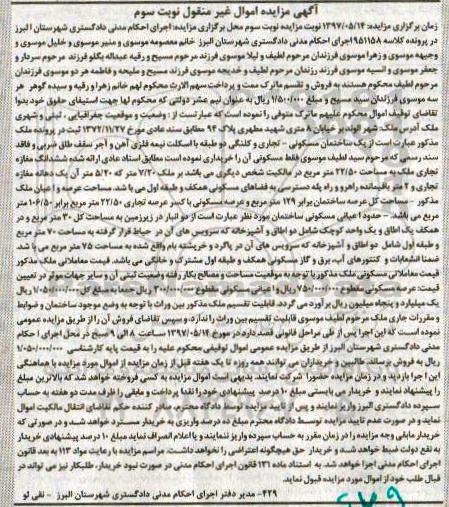 آگهی مزایده اموال غیر منقول نوبت سوم
زمان برگزاری مزایده: ۱۳۹۷/۰۵/۱۴ نوبت مزایده نوبت سوم محل برگزاری مزایده: اجرای احکام مدنی دادگستری شهرستان البرز
در پرونده کلاسه ۱۹۵۱۱۵۸ اجرای احکام مدنی دادگستری شهرستان البرز خانم معصومه موسوی و منیر موسوی و خلیل موسوی و
وجیهه موسوی و زهرا موسوی فرزندان مرحوم لطیف و لیلا موسوی فرزند مرحوم مسیح و رقیه عبداله بگلو فرزند مرحوم سردار و
جعفر موسوی و انسیه موسوی فرزندان مرحوم لطیف و خدیجه موسوی فرزند مرحوم مسیح و ملیحه و فاطمه هر دو موسوی فرزندان
مرحوم لطیف محکوم هستند به فروش و تقسیم ماترک مدت و پرداخت سهم الارث محکوم لهم خانم زهرا و رقیه و سیده گوهر هر
سه موسوی فرزندان سید مسیح و مبلغ ۱/۵۰۰/۰۰۰ ریال به عنوان نیم عشر دولتی که محکوم لها جهت استیفای حقوق خود بدوا
تقاضای توقیف اموال محکوم علیهم ماترک متوفی را نموده است که عبارت است از : وضعیت و موقعیت جغرافیایی ، ثبتی و شهری
ملک آدرس ملک: شهر الوند بر خیابان ۸ متری شهید مطهری پلاک ۹۴ مطابق سند عادی مورخ ۱۳۷۲/۱۱/۲۷ ثبت در پرونده ملک
مذکور عبارت است از یک ساختمان مسکونی - تجاری و کلنگی دو طبقه با اسکلت نیمه فلزی آهن و آجر سقف طاق ضربی و فاقد
سند رسمی که مرحوم سید لطیف موسوی فقط مسکونی آن را خریداری نموده است مطابق اسناد عادی ارائه شده ششدانگ مغازه
تجاری ملک به مساحت ۲۲/۵۰ متر مربع در مالکیت شخص دیگری می باشد بر ملک ۷/۲۰ متر که ۵/۲۰ متر آن یک دهانه مغازه
تجاری و ۲ متر باقیمانده راهرو و راه پله دسترسی به فضاهای مسکونی همکف و طبقه اول می با شد. مساحت عرصه و اعیان ملک
مذکور - مساحت کل عرصه ساختمان برابر ۱۲۹ متر مربع و عرصه مسکونی با کسر عرصه تجاری ۲۲/۵۰ متر مربع برابر ۱۰۶/۵۰ متر
مربع می باشد. - حدود اعیانی مسکونی ساختمان مورد نظر عبارت است از دو انبار در زیرزمین به مساحت کل ۳۰ متر مربع و در
همکف یک اطاق و یک واحد کوچک شامل دو اطاق و آشپزخانه که سرویس های آن در حیاط قرار گرفته به مساحت ۷۰ متر مربع
و طبقه اول شامل دو اطاق و آشپزخانه که سرویس های آن در پاگرد و خرپشته بام واقع شده به مساحت ۷۵ متر مربع می با شد.
ضمنا انشعابات و کنتورهای آب، برق و گاز مسکونی همکف و طبقه اول مشترک و خانگی می باشد. قیمت معاملاتی ملک مذکور
قیمت معاملاتی مسکونی ملک مذکور با توجه به موقعیت مساحت و مصالح بکار رفته وضعیت ثبتی آن و سایر جهات موثر در تعیین
قیمت: عرصه مسکونی مقطوع ۷۵۰/۰۰۰/۰۰۰ ریال و اعیانی مسکونی مقطوع ۳۰۰/۰۰۰/۰۰۰ ریال جمعا به مبلغ کل ۱/۰۵۰/۰۰۰/۰۰۰ ریال
یک میلیارد و پنجاه میلیون ریال بر آورد می گردد. قابلیت تقسیم ملک مذکور بین وراث با توجه به وضع موجود ساختمان و ضوابط
و مقررات جاری ملک مرحوم لطیف موسوی قابلیت تقسیم بین وراث را ندارد. و سپس تقاضای فروش آن را از طریق مزایده عمومی
نموده است که این اجرا پس از طی مراحل قانونی قصد دارد در مورخ ۱۳۹۷/۰۵/۱۴ ساعت ۸ الی ۹ صبح در محل اجرای احکام
مدنی دادگستری شهرستان البرز از طریق مزایده عمومی اموال توقیفی محکوم علیه را به قیمت پایه کارشناسی ۱/۰۵۰/۰۰۰/۰۰۰
ریال به فروش رساند. طالبین و خریداران می توانند همه روزه تا یک هفته قبل از زمان مزایده از اموال مورد مزایده با هماهنگی
این اجرا بازدید و در زمان مزایده حضورا شرکت نمایند. بدیهی است اموال مزایده به کسی فروخته خواهد شد که بالاترین مبلغ
را پیشنهاد نمایند و خریدار می بایستی مبلغ ۱۰ درصد پیشنهادی خود را نقدا پرداخت و مابقی را ظرف مدت دو هفته به حساب
سپرده دادگستری البرز واریز نمایند و پس از تایید مزایده توسط دادگاه محترم صادر کننده حکم تقاضای انتقال مالکیت اموال
نماید و در صورت عدم تایید مزایده توسط دادگاه محترم مبلغ ده درصد واریزی به خریدار مسترد خواهد شد و در صورتی که
خریدار مابقی وجه مزایده را در زمان مقرر به حساب سپرده واریز ننمایند و یا اعلام انصراف نماید مبلغ ۱۰ درصد پیشنهادی خریدار
به نفع دولت ضبط خواهد شد و خریدار حق هیچگونه اعتراضی را نخواهد داشت. مراسم مزایده با رعایت مواد ۱۱۳ به بعد قانون
اجرای احکام مدنی اجرا خواهد شد. به استناد ماده ۱۳۱ قانون اجرای احکام مدنی در صورت نبود خریدار، طلبکار نیز می تواند در
قبال طلب خود از اموال مورد مزایده قبول نماید.
۴۲۹- مدیر دفتر اجرای احکام مدنی دادگستری شهرستان البرز - نقی لو